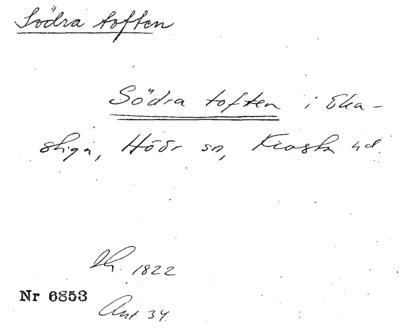 Södra toften
Södra toften i Eka-
stiga, Höör sn, Frosta hd.
Lh. 1822
Nr 6853
Ant 34.